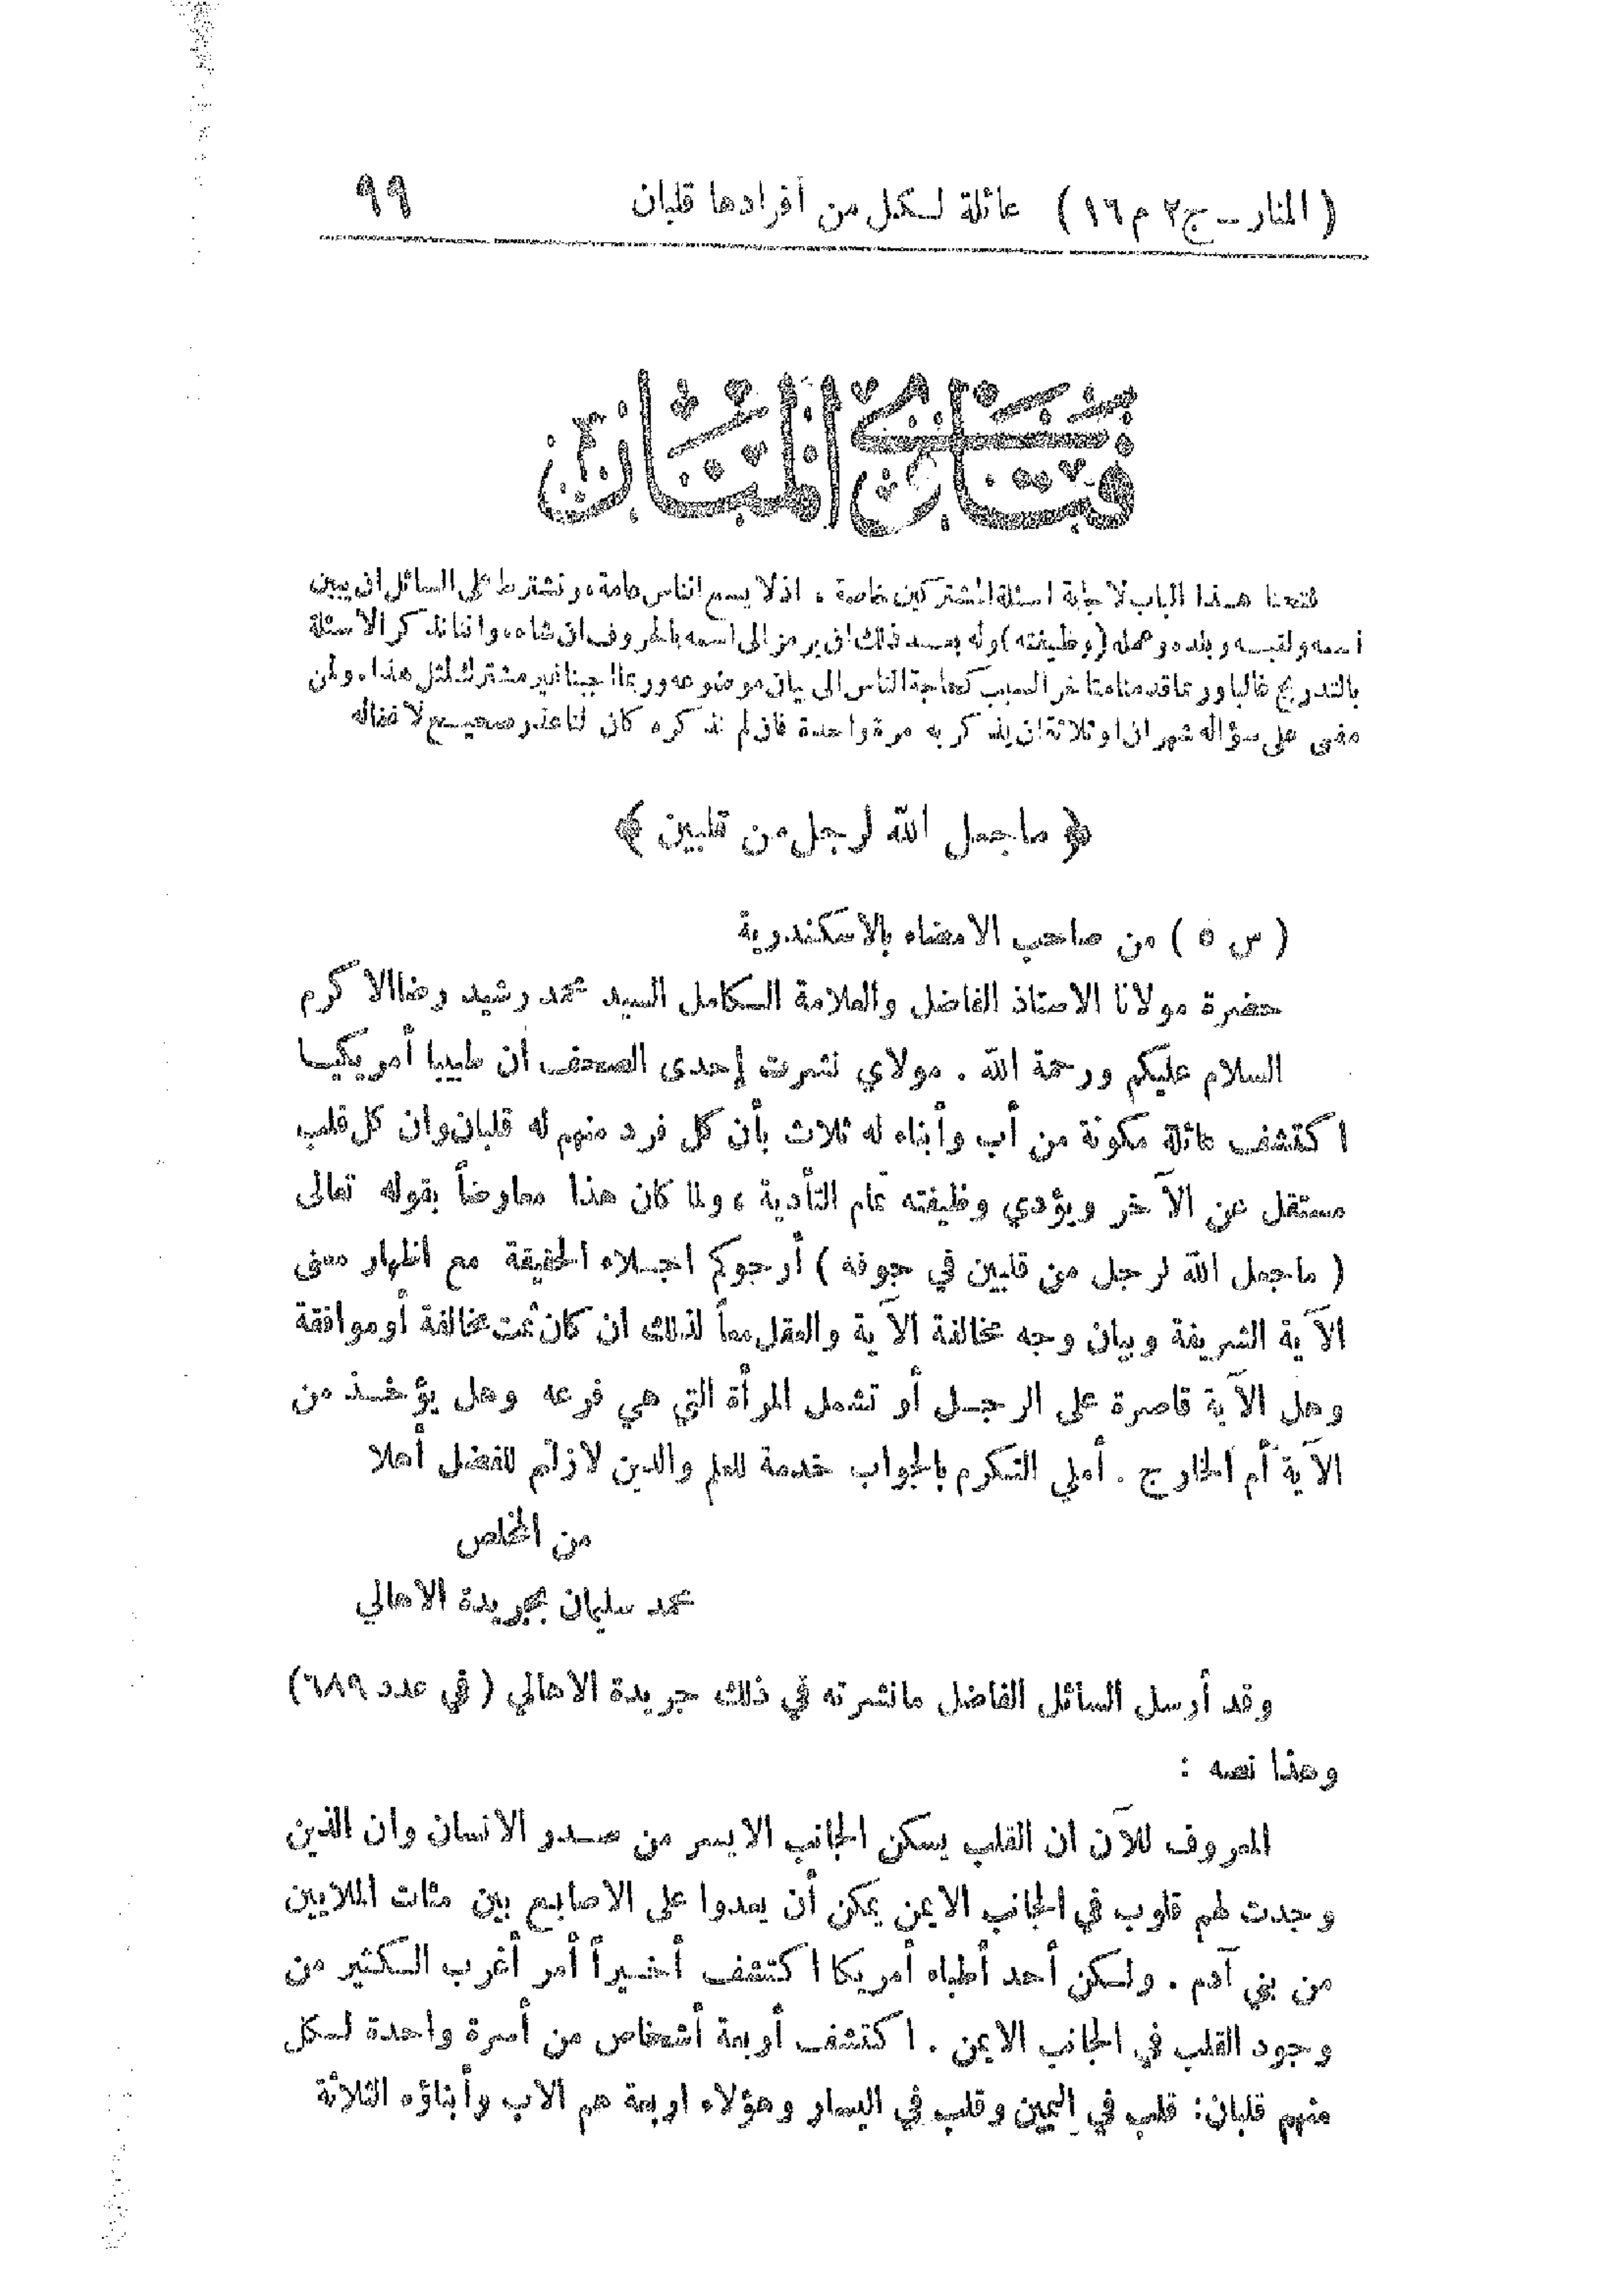 (المنار ـ ج ٢ م ١٦) عائلة لكل من أفرادها قلبان ٩٩
فتاوى المنار
فتحنا هذا الباب لاجابة اسئلة المشتركين خاصة ، اذ لا يسع الناس عامة، ونشترط على السائل ان يبين
اسمه ولقبه وبلده وعمله (وظيفته) وله بعد ذلك ان يرمز الى اسمه بالحروف ان شاء، واننا نذكر الاسئلة
بالتدريج غالبا وربما قدمنا متأخر السبب كحاجة الناس الى بيان موضوعه وربما اجبنا غير مشترك لمثل هذا. ولمن
مضى على سؤاله شهران او ثلاثة ان يذكر به مرة واحدة فان لم نذكره كان لنا عذر صحيح لاغفاله
﴿ ما جعل الله لرجل من قلبين ﴾
( س ٥ ) من صاحب الامضاء بالاسكندرية
حضرة مولانا الاستاذ الفاضل والعلامة الكامل السيد محمد رشيد رضا الاكرم
السلام عليكم ورحمة الله . مولاي نشرت إحدى الصحف أن طبيبا أمريكيا
اكتشف عائلة مكونة من أب وأبناء له ثلاث بأن كل فرد منهم له قلبان وان كل قلب
مستقل عن الآخر ويؤدي وظيفته تمام التأدية ، ولما كان هذا معارضاً بقوله تعالى
( ما جعل الله لرجل من قلبين في جوفه ) أرجوكم اجلاء الحقيقة مع اظهار معنى
الآية الشريفة وبيان وجه مخالفة الآية والعقل معاً لذلك ان كان ثمت مخالفة أو موافقة
وهل الآية قاصرة على الرجل أو تشمل المرأة التي هي فرعه وهل يؤخذ من
الآية أم الخارج . أملي التكرم بالجواب خدمة للعلم والدين لازلتم للفضل أهلا
من المخلص
محمد سليمان بجريدة الاهالي
وقد أرسل السائل الفاضل مانشرته في ذلك جريدة الاهالي ( في عدد ٦٨٩)
وهذا نصه :
المعروف للآن ان القلب يسكن الجانب الايسر من صدر الانسان وان الذين
وجدت لهم قلوب في الجانب الايمن يمكن أن يعدوا على الاصابع بين مئات الملايين
من بني آدم . ولكن أحد أطباء أمريكا اكتشف أخيراً أمر أغرب الكثير من
وجود القلب في الجانب الايمن . اكتشف أربعة أشخاص من أسرة واحدة لكل
منهم قلبان: قلب في اليمين وقلب في اليسار وهؤلاء اربعة هم الاب وأبناؤه الثلاثة